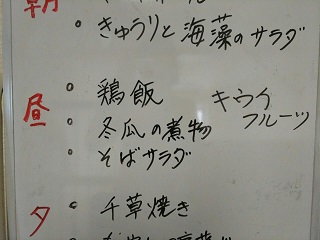 朝
・きゅうりと海藻のサラダ
昼
・鶏飯
キウイフルーツ
・冬瓜の煮物
・そばサラダ
夕
・千草焼き